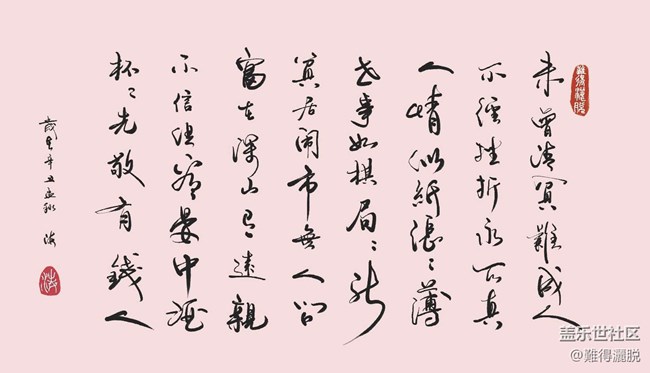 難得灑脫
未曾清貧難成人
不經挫折永天真
人情似紙張〻薄
世事如棋局〻新
貧居鬧市無人問
富在深山有遠親
不信但看宴中酒
杯〻先敬有錢人
歲在辛丑孟秋 海
盖乐世社区
@難得灑脱